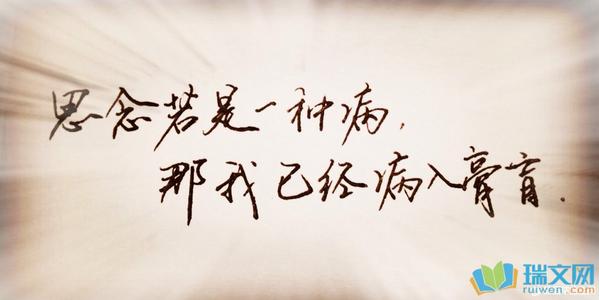 思念若是一种病,
那我已经病入膏肓.
瑞文网
ruiwen.com